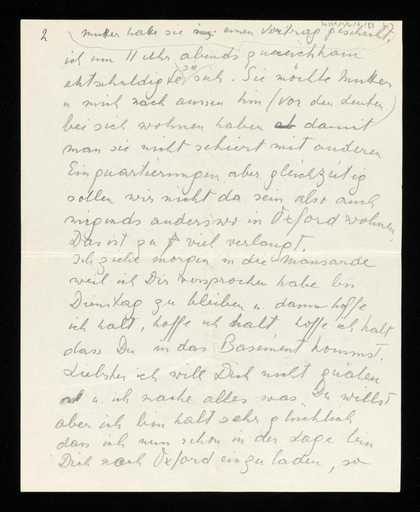 2
Mutter hatte sie einen Vortrag geschickt,
ich um 11 Uhr abends zurückkam
entschuldigte sie sich. Sie möchte Mutter
u mich nach aussen hin (vor den Leuten)
bei sich wohnen haben damit
man sie nicht schiert mit anderen
Einquartierungen aber gleichzeitig
sollen wir nicht da sein also auch
nirgends anderswo in Oxford wohnen.
Das ist zu viel verlangt.
Ich ziehe morgen in die Mansarde
weil ich Dir versprochen habe bis
Dienstag zu bleiben u. dann hoffe
ich halt, hoffe ich halt hoffe ich halt
dass Du in das Basement kommst.
Liebster ich will Dich nicht quälen
u. ich mache alles was Du willst
aber ich bin halt sehr glücklich
dass ich nun schon in der Lage bin
Dich nach Oxford einzuladen, so